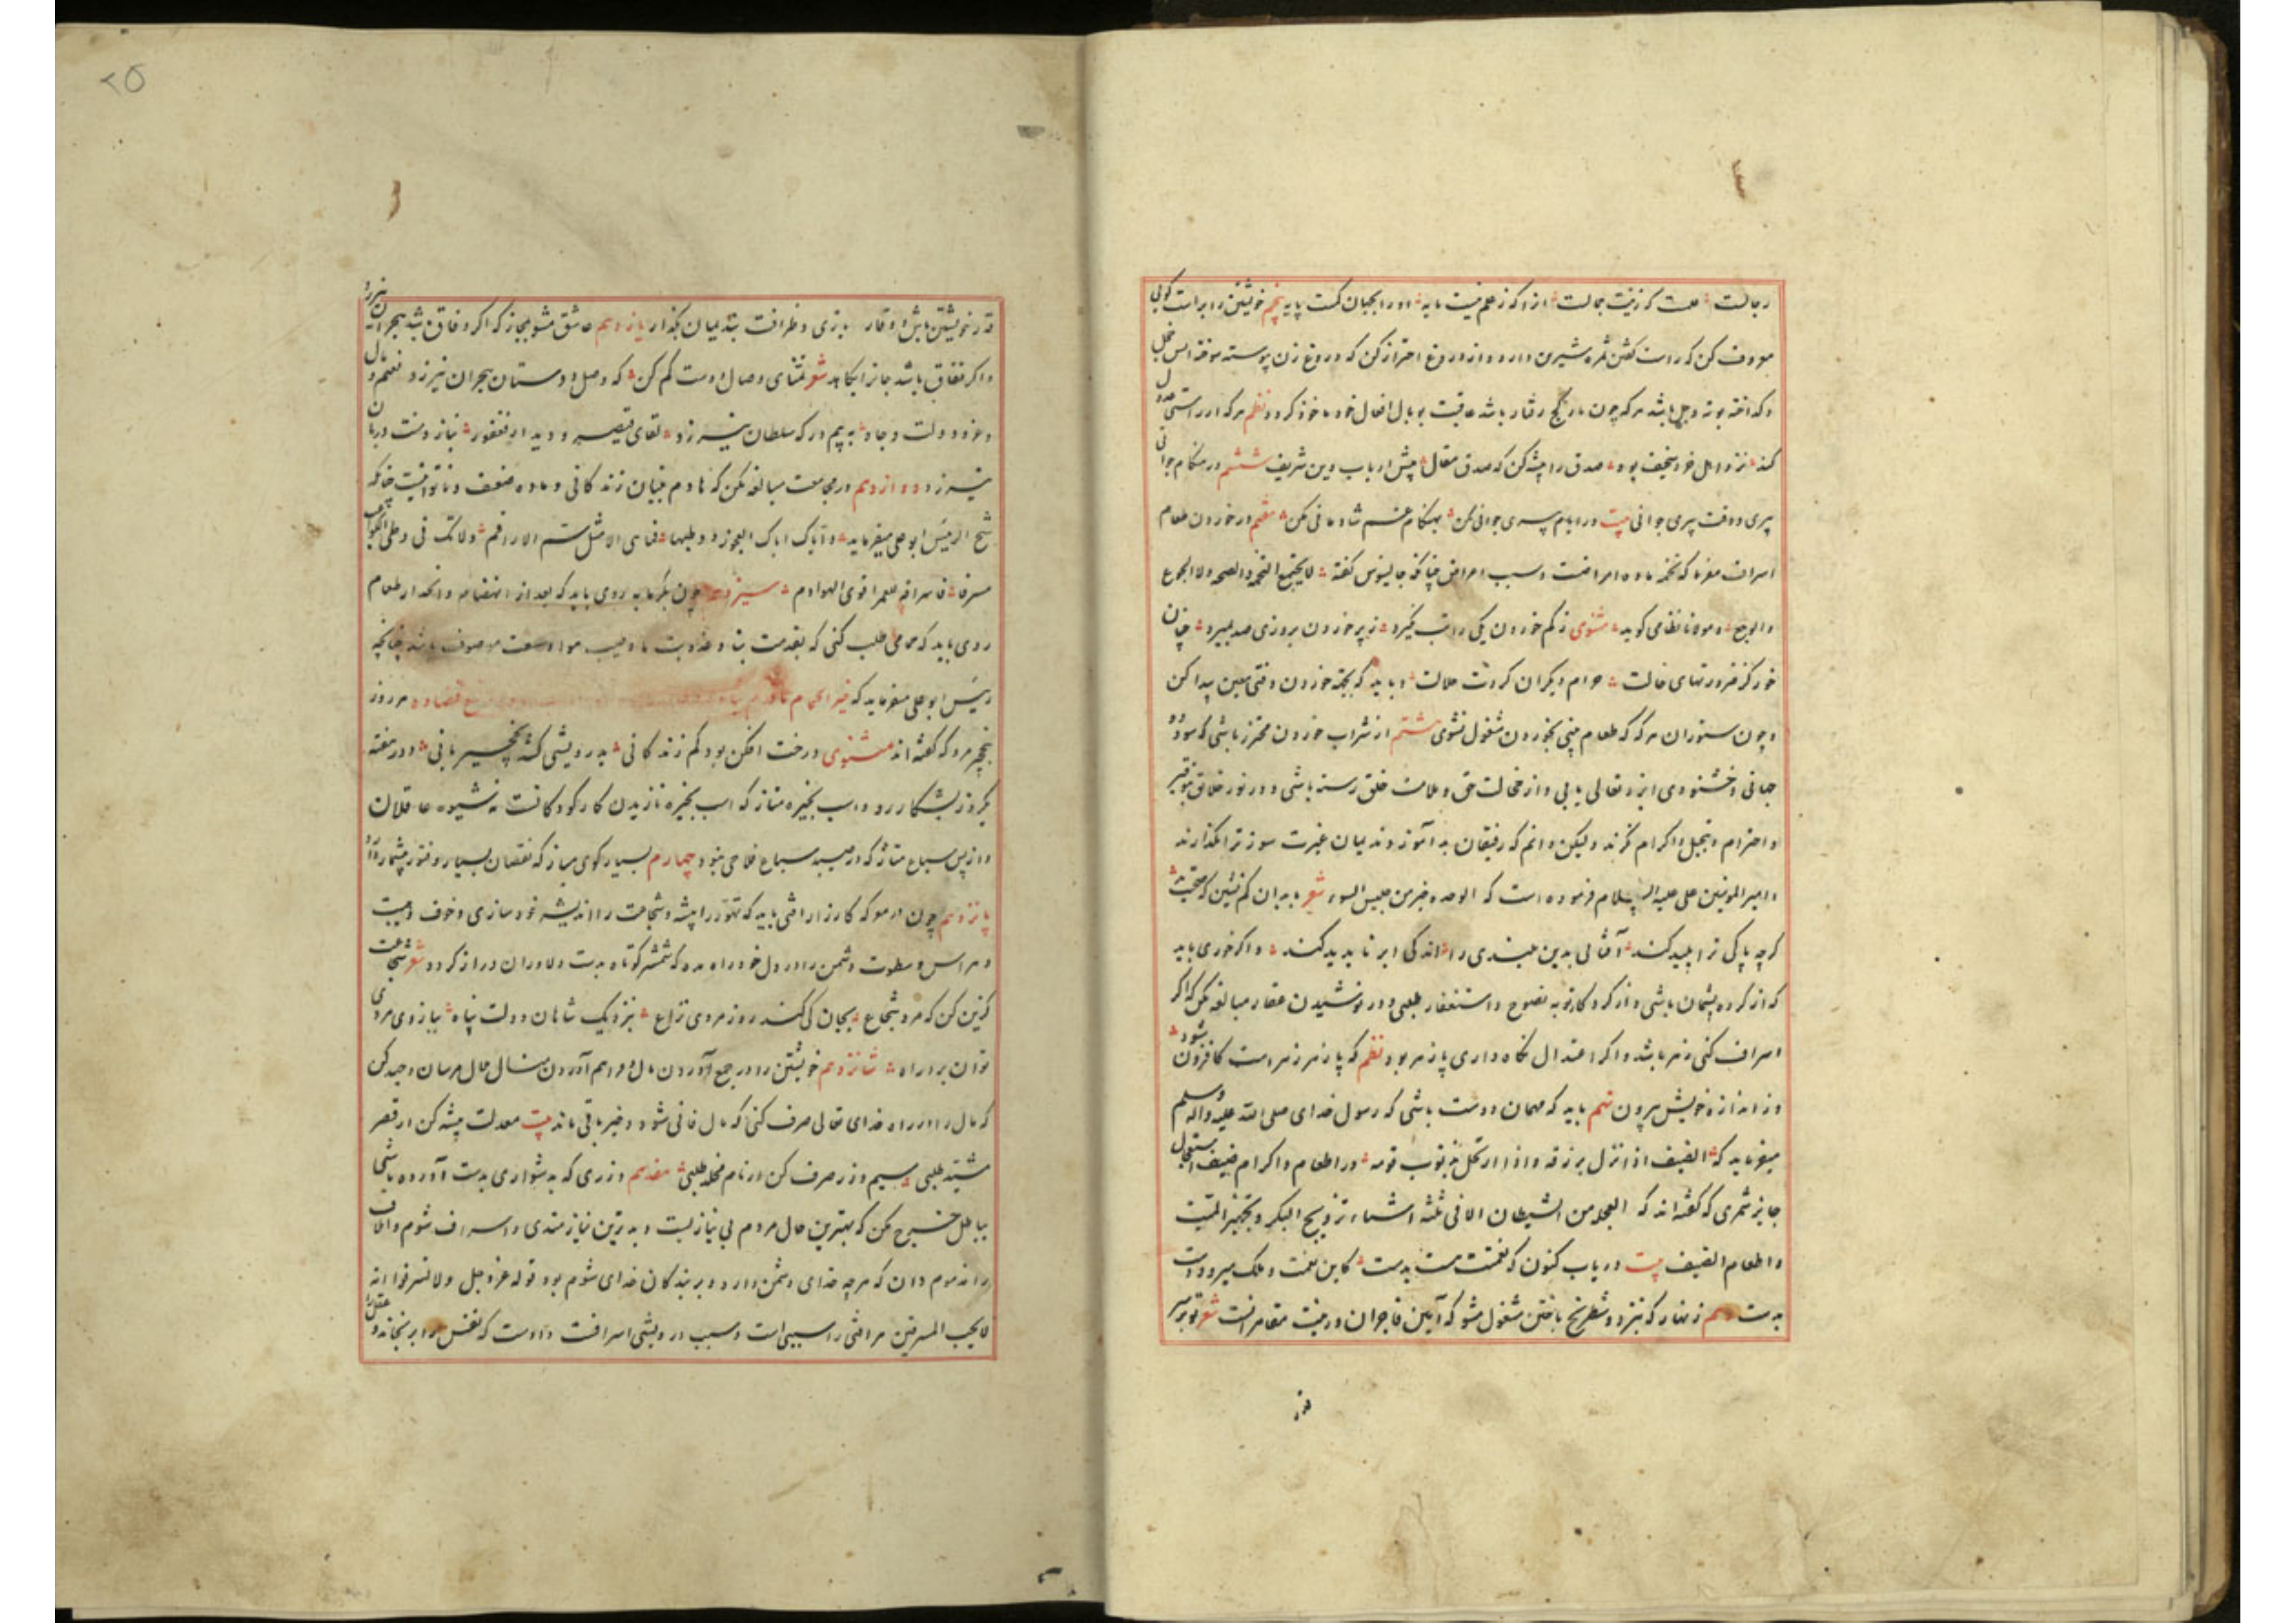 رجالت ؞ علمت کو زینت جمالت ؞ انرا که ز علم نیست مایه ؞ او را بجهان کمست پایه پنجم خویشتن را براست کویی
معروف کن که راست کفتن ثمره شیرین دارد و از دروغ احتراز کن که دروغ زن پیوسته سوخته
و کداخته بوته وجل باشد هرکه چون مار کج رفتار باشد عاقبت بوبال افعال خود ماخوذ کردد نظم هرکه از راستی عدول
کند ؞ نزد اهل خرد سخیف بود ؞ صدق را پیشه کن که صدق مقال ؞ پیش ارباب دین شریف ششم در هنکام جوانی
پیری و وقت پیری جوانی بیت در ایام پیری جوانی مکن ؞ بهنکام غم شادمانی مکن ؞ هفتم در خوردن طعام
اسراف مفرما که تخمه ماده امراضست و سبب امراض چنانکه جالینوس کفته ؞ لا یجتمع التخمة والصحه ولا الجوع
والوجع ؞ و مولانا نظامی کوید ؞ مثنوی ز کم خوردن یکی را تب نکیرد ؞ ز پر خوردن بروزی صد بمیرد ؞ چنان
خور کز ضرورتهای حالت ؞ حرام دیکران کردت حلالت ؞ و باید که بجهة خوردن وقتی معین پیدا کن
و چون ستوران هرکه که طعام بینی بخوردن مشغول نشوی هشتم از شراب خوردن محترز باشی که سود دو
جهانی و خشنودی ایزد تعالی یابی و از خجالت حق و ملامت خلق رسته باشی و در نزد خلایق بتوقیر
و احترام و تبجیل و اکرام کردند ولیکن دانم که رفیقان بدآموز و ندیمان غیرت سوز ترا نکذارند
و امیر المومنین علی علیه السلام فرموده است که الوحده خیر من جلیس السوء شعر با بدان کم نشین که صحبت بد ؞
کرچه پاکی ترا پلید کند ؞ آفتابی بدین بلندی را ؞ اندکی ابر ناپدید کند ؞ و اکر خوری باید
که از کرده پشیمان باشی و از کردکار توبه نصوح و استغفار طلبی و در نوشیدن عقار مبالغه مکن که اکر
اسراف کنی زهر باشد و اکر اعتدال نکاه داری پازهر بود نظم که پازهر زهر است کافزون شود ؞
وز اندازه خویش بیرون نهم باید که مهمان دوست باشی که رسول خدای صلی الله علیه و آله وسلم
میفرماید که ؞ الضیف اذا نزل برزقه و اذا ارتحل بذنوب قومه ؞ در اطعام و اکرام ضیف استعجال
جایز شمری که کفته اند که العجله من الشیطان الا فی ثلثه اشیاء تزویج البکر و تجهیز المیت
و اطعام الضیف بیت دریاب کنون که نعمتت هست بدست ؞ کاین نعمت و ملک میرود دست
بدست دهم زنهار که بنرد و شطرنج باختن مشغول مشو که آیین فاجران و رغبت مقامرانست شعر تو بر سر
قدر
۲۵
قدر خویشتن باش و وقار ؞ بازی و ظرافت بندیمان بکذار یازدهم عاشق مشو بمجاز که اکر وفاق باشد بهجران نیرزد
و اکر نفاق باشد جانرا بکاهد شعر تمنای وصال دوست کم کن ؞ که وصل دوستان بهجران نیرزد
و عز و دولت و جاه ؞ به بیم درکه سلطان نیرزد ؞ لقای قیصر و دیدار فغفور ؞ نیاز و منت دربان
نیرزد دوازدهم در مجامعت مبالغه مکن که هادم بنیان زندکانی و ماده ضعف و ناتوانیست چنانکه
شیخ الرئیس ابو علی میفرماید ؞ و ایاک ایاک العجوز و وطیها ؞ فما هی الا مثل سم الاراقم ؞ ولا تک فی وطی الکواعب
مسرفا ؞ فاسرافه للعمر اقوی الهوادم ؞ سیزدهم چون بکرمابه روی باید که بعد از انهضام و انحدار طعام
روی باید که حمامی طلب کنی که بقدمت بنا و عذوبت ما و طیب هوا و وسعت موصوف باشد چنانچه
رئیس ابو علی میفرماید که خیر الحمام ما قدم بناه هر روز
بنخچیر مرو که کفته اند مثنوی درخت افکن بود کم زندکانی ؞ بدرویشی کشد نخچیر بانی ؞ و در هفته
یکروز بشکار رو و اسب بخیره متاز که اسب بخیره تازیدن کار کودکانست نه شیوه عاقلان
و از پس سباع متاز که از صید سباع فلاحی نبود چهاردهم بسیار کوی مباز که نقصان بسیار و فتور بیشمار دارد
پانزدهم چون در معرکه کارزار افتی باید که تهور را پیشه و شجاعت را اندیشه خود سازی و خوف و هیبت
و هراس و سطوت دشمن را در دل خود راه مده که شمشیر کوتاه بدست دلاوران دراز کردد شعر شجاعت
کزین کن که مرد شجاع ؞ بجان کی کند روز مردی نزاع ؞ بنزدیک شاهان دولت پناه ؞ ببازوی مردی
توان برد راه ؞ شانزدهم خویشتن را در جمع آوردن مال و فراهم آوردن منال حال مرسان و جهد کن
که مال را در راه خدای تعالی صرف کنی که مال فانی شود و خیر باقی ماند بیت معدلت پیشه کن ار قصر
مشید طلبی ؞ سیم و زر صرف کن ار نام مخلد طلبی ؞ هفدهم و زری که بدشواری بدست آورده باشی
بباطل خرج مکن که بهترین حال مردم بی نیازیست و بدترین نیازمندی و اسراف شوم و اتلاف
را مذموم دان که هرچه خدای دشمن دارد و بر بندکان خدای شوم بود قوله عز و جل ولا تسرفوا انه
لا یحب المسرفین هر آفتی را سببی است و سبب درویشی اسرافست و نه اوست که نفس را برنجاند و عقل را